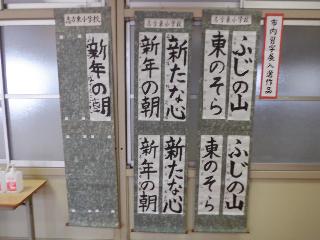 市内習字展入選作品
志古東小学校
ふじの山
東のそら
ふじの山
東のそら
志古東小学校
新たな心
新年の朝
新たな心
新年の朝
志古東小学校
新年の朝